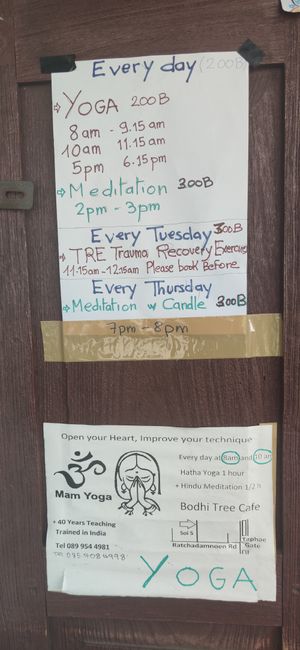 Every day (200B)
→ YOGA 200B
8am - 9.15am
10am 11.15am
5pm 6.15pm
→ Meditation 300B
2pm - 3pm
Every Tuesday 300B
→ TRE Trauma Recovery Exercise
11.15am - 12.15am Please book Before
Every Thursday
→ Meditation w Candle 300B
7pm - 8pm
Open your Heart, Improve your technique
Every day at 8am and 10am
Hatha Yoga 1 hour
+ Hindu Meditation 1/2 h
ॐ
Mam Yoga
Bodhi Tree Cafe
+ 40 Years Teaching
Trained in India
Soi 5
Ratchadamnoen Rd
Taphae
Gate
Tel 089 954 4981
YOGA